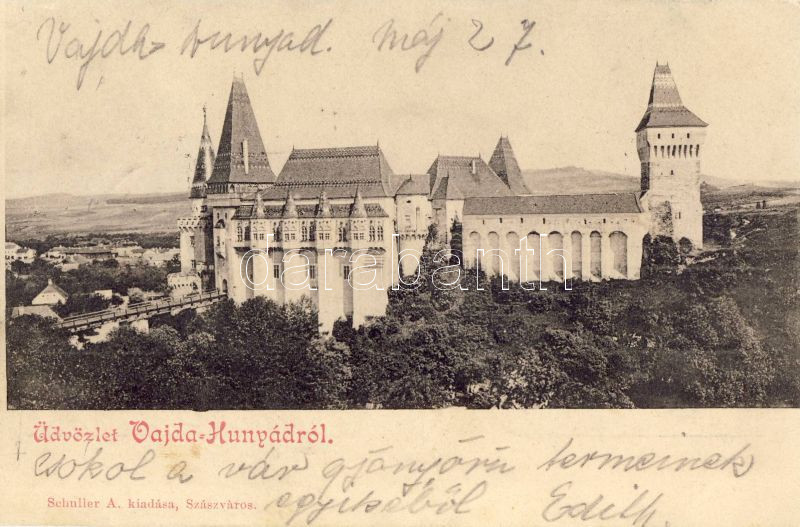 Vajda Hunyad. máj 27.
darabanth
Üdvözlet Vajda-Hunyádról.
csókol a vár gyönyörü termeinek
Schuller A. kiadása, Szászváros.
egyikéből Edith.